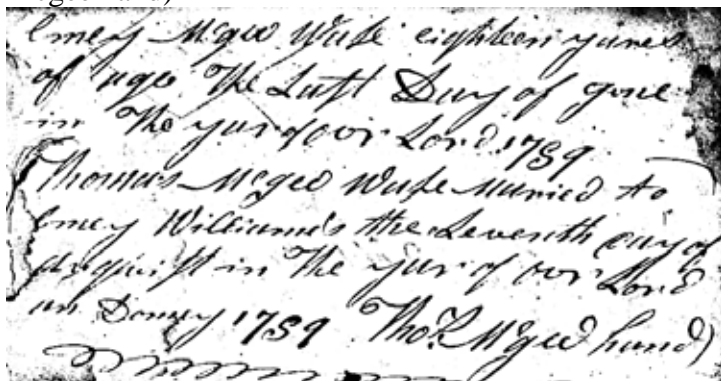 Emey Mgee Wase eighteen years
of agee The Last Day of gune
in The year of ovr Lord 1789
Thomas Mcgee Wase Maried to
Emey Williams the Leventh day of
in The year of ovr Lord
an Domey 1789 Tho.s Mcgee hand)